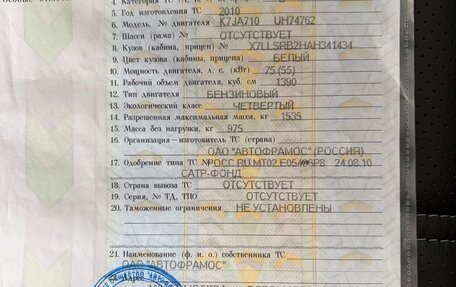 5. Год изготовления ТС 2010
6. Модель, № двигателя K7JA710 UH74762
7. Шасси (рама) № ОТСУТСТВУЕТ
8. Кузов (кабина, прицеп) № X7LLSRB2HAH341434
9. Цвет кузова (кабины, прицепа) БЕЛЫЙ
10. Мощность двигателя, л. с. (кВт) 75 (55)
11. Рабочий объем двигателя, куб. см 1390
12. Тип двигателя БЕНЗИНОВЫЙ
13. Экологический класс ЧЕТВЕРТЫЙ
14. Разрешенная максимальная масса, кг 1535
15. Масса без нагрузки, кг 975
16. Организация—изготовитель ТС (страна)
ОАО "АВТОФРАМОС" (РОССИЯ)
17. Одобрение типа ТС № РОСС RU.MT02.E05406P8 24.08.10
САТР-ФОНД
18. Страна вывоза ТС ОТСУТСТВУЕТ
19. Серия, № ТД, ТПО ОТСУТСТВУЕТ
20. Таможенные ограничения НЕ УСТАНОВЛЕНЫ
21. Наименование (ф. и. о.) собственника ТС
ОАО "АВТОФРАМОС"